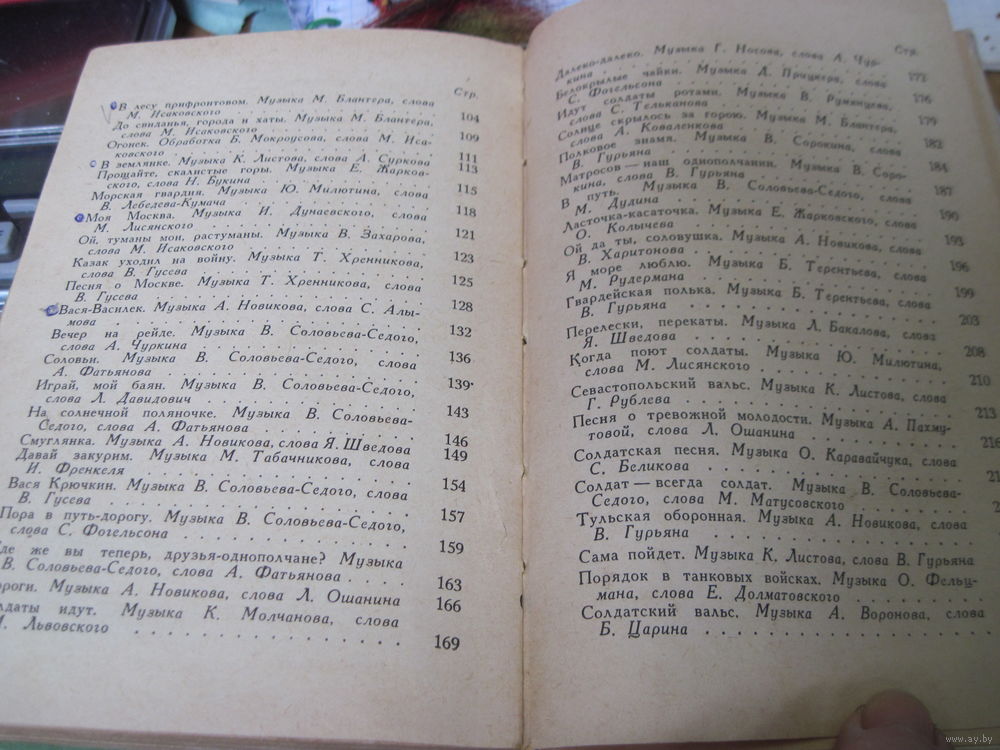 Стр.
В лесу прифронтовом. Музыка М. Блантера, слова
М. Исаковского 104
До свиданья, города и хаты. Музыка М. Блантера,
слова М. Исаковского 109
Огонек. Обработка Б. Мокроусова, слова М. Иса-
ковского 111
В землянке. Музыка К. Листова, слова А. Суркова 113
Прощайте, скалистые горы. Музыка Е. Жарков-
ского, слова Н. Букина 115
Морская гвардия. Музыка Ю. Милютина, слова
В. Лебедева-Кумача 118
Моя Москва. Музыка И. Дунаевского, слова
М. Лисянского 121
Ой, туманы мои, растуманы. Музыка В. Захарова,
слова М. Исаковского 123
Казак уходил на войну. Музыка Т. Хренникова,
слова В. Гусева 125
Песня о Москве. Музыка Т. Хренникова, слова
В. Гусева 128
Вася-Василек. Музыка А. Новикова, слова С. Алы-
мова 132
Вечер на рейде. Музыка В. Соловьева-Седого,
слова А. Чуркина 136
Соловьи. Музыка В. Соловьева-Седого, слова
А. Фатьянова 139
Играй, мой баян. Музыка В. Соловьева-Седого,
слова Л. Давидович 143
На солнечной поляночке. Музыка В. Соловьева-
Седого, слова А. Фатьянова 146
Смуглянка. Музыка А. Новикова, слова Я. Шведова 149
Давай закурим. Музыка М. Табачникова, слова
И. Френкеля 154
Вася Крючкин. Музыка В. Соловьева-Седого, слова
В. Гусева 157
Пора в путь-дорогу. Музыка В. Соловьева-Седого,
слова С. Фогельсона 159
де же вы теперь, друзья-однополчане? Музыка
В. Соловьева-Седого, слова А. Фатьянова 163
роги. Музыка А. Новикова, слова Л. Ошанина 166
лдаты идут. Музыка К. Молчанова, слова
М. Львовского 169
Стр.
Далеко-далеко. Музыка Г. Носова, слова А. Чур-
кина 173
Белокрылые чайки. Музыка Д. Прицкера, слова
С. Фогельсона 176
Идут солдаты ротами. Музыка В. Румянцева,
слова С. Тельканова 179
Солнце скрылось за горою. Музыка М. Блантера,
слова А. Коваленкова 182
Полковое знамя. Музыка В. Сорокина, слова
В. Гурьяна 184
Матросов — наш однополчанин. Музыка В. Соро-
кина, слова В. Гурьяна 187
В путь. Музыка В. Соловьева-Седого, слова
М. Дудина 190
Ласточка-касаточка. Музыка Е. Жарковского, слова
О. Колычева 193
Ой да ты, соловушка. Музыка А. Новикова, слова
В. Харитонова 196
Я море люблю. Музыка Б. Терентьева, слова
М. Рудермана 199
Гвардейская полька. Музыка Б. Терентьева, слова
В. Гурьяна 203
Перелески, перекаты. Музыка Л. Бакалова, слова
Я. Шведова 208
Когда поют солдаты. Музыка Ю. Милютина,
слова М. Лисянского 210
Севастопольский вальс. Музыка К. Листова, слова
Г. Рублева 213
Песня о тревожной молодости. Музыка А. Пахму-
товой, слова Л. Ошанина 216
Солдатская песня. Музыка О. Каравайчука, слова
С. Беликова 21
Солдат — всегда солдат. Музыка В. Соловьева-
Седого, слова М. Матусовского 2
Тульская оборонная. Музыка А. Новикова, слова
В. Гурьяна
Сама пойдет. Музыка К. Листова, слова В. Гурьяна
Порядок в танковых войсках. Музыка О. Фельц-
мана, слова Е. Долматовского
Солдатский вальс. Музыка А. Воронова, слова
Б. Царина
www.ay.by